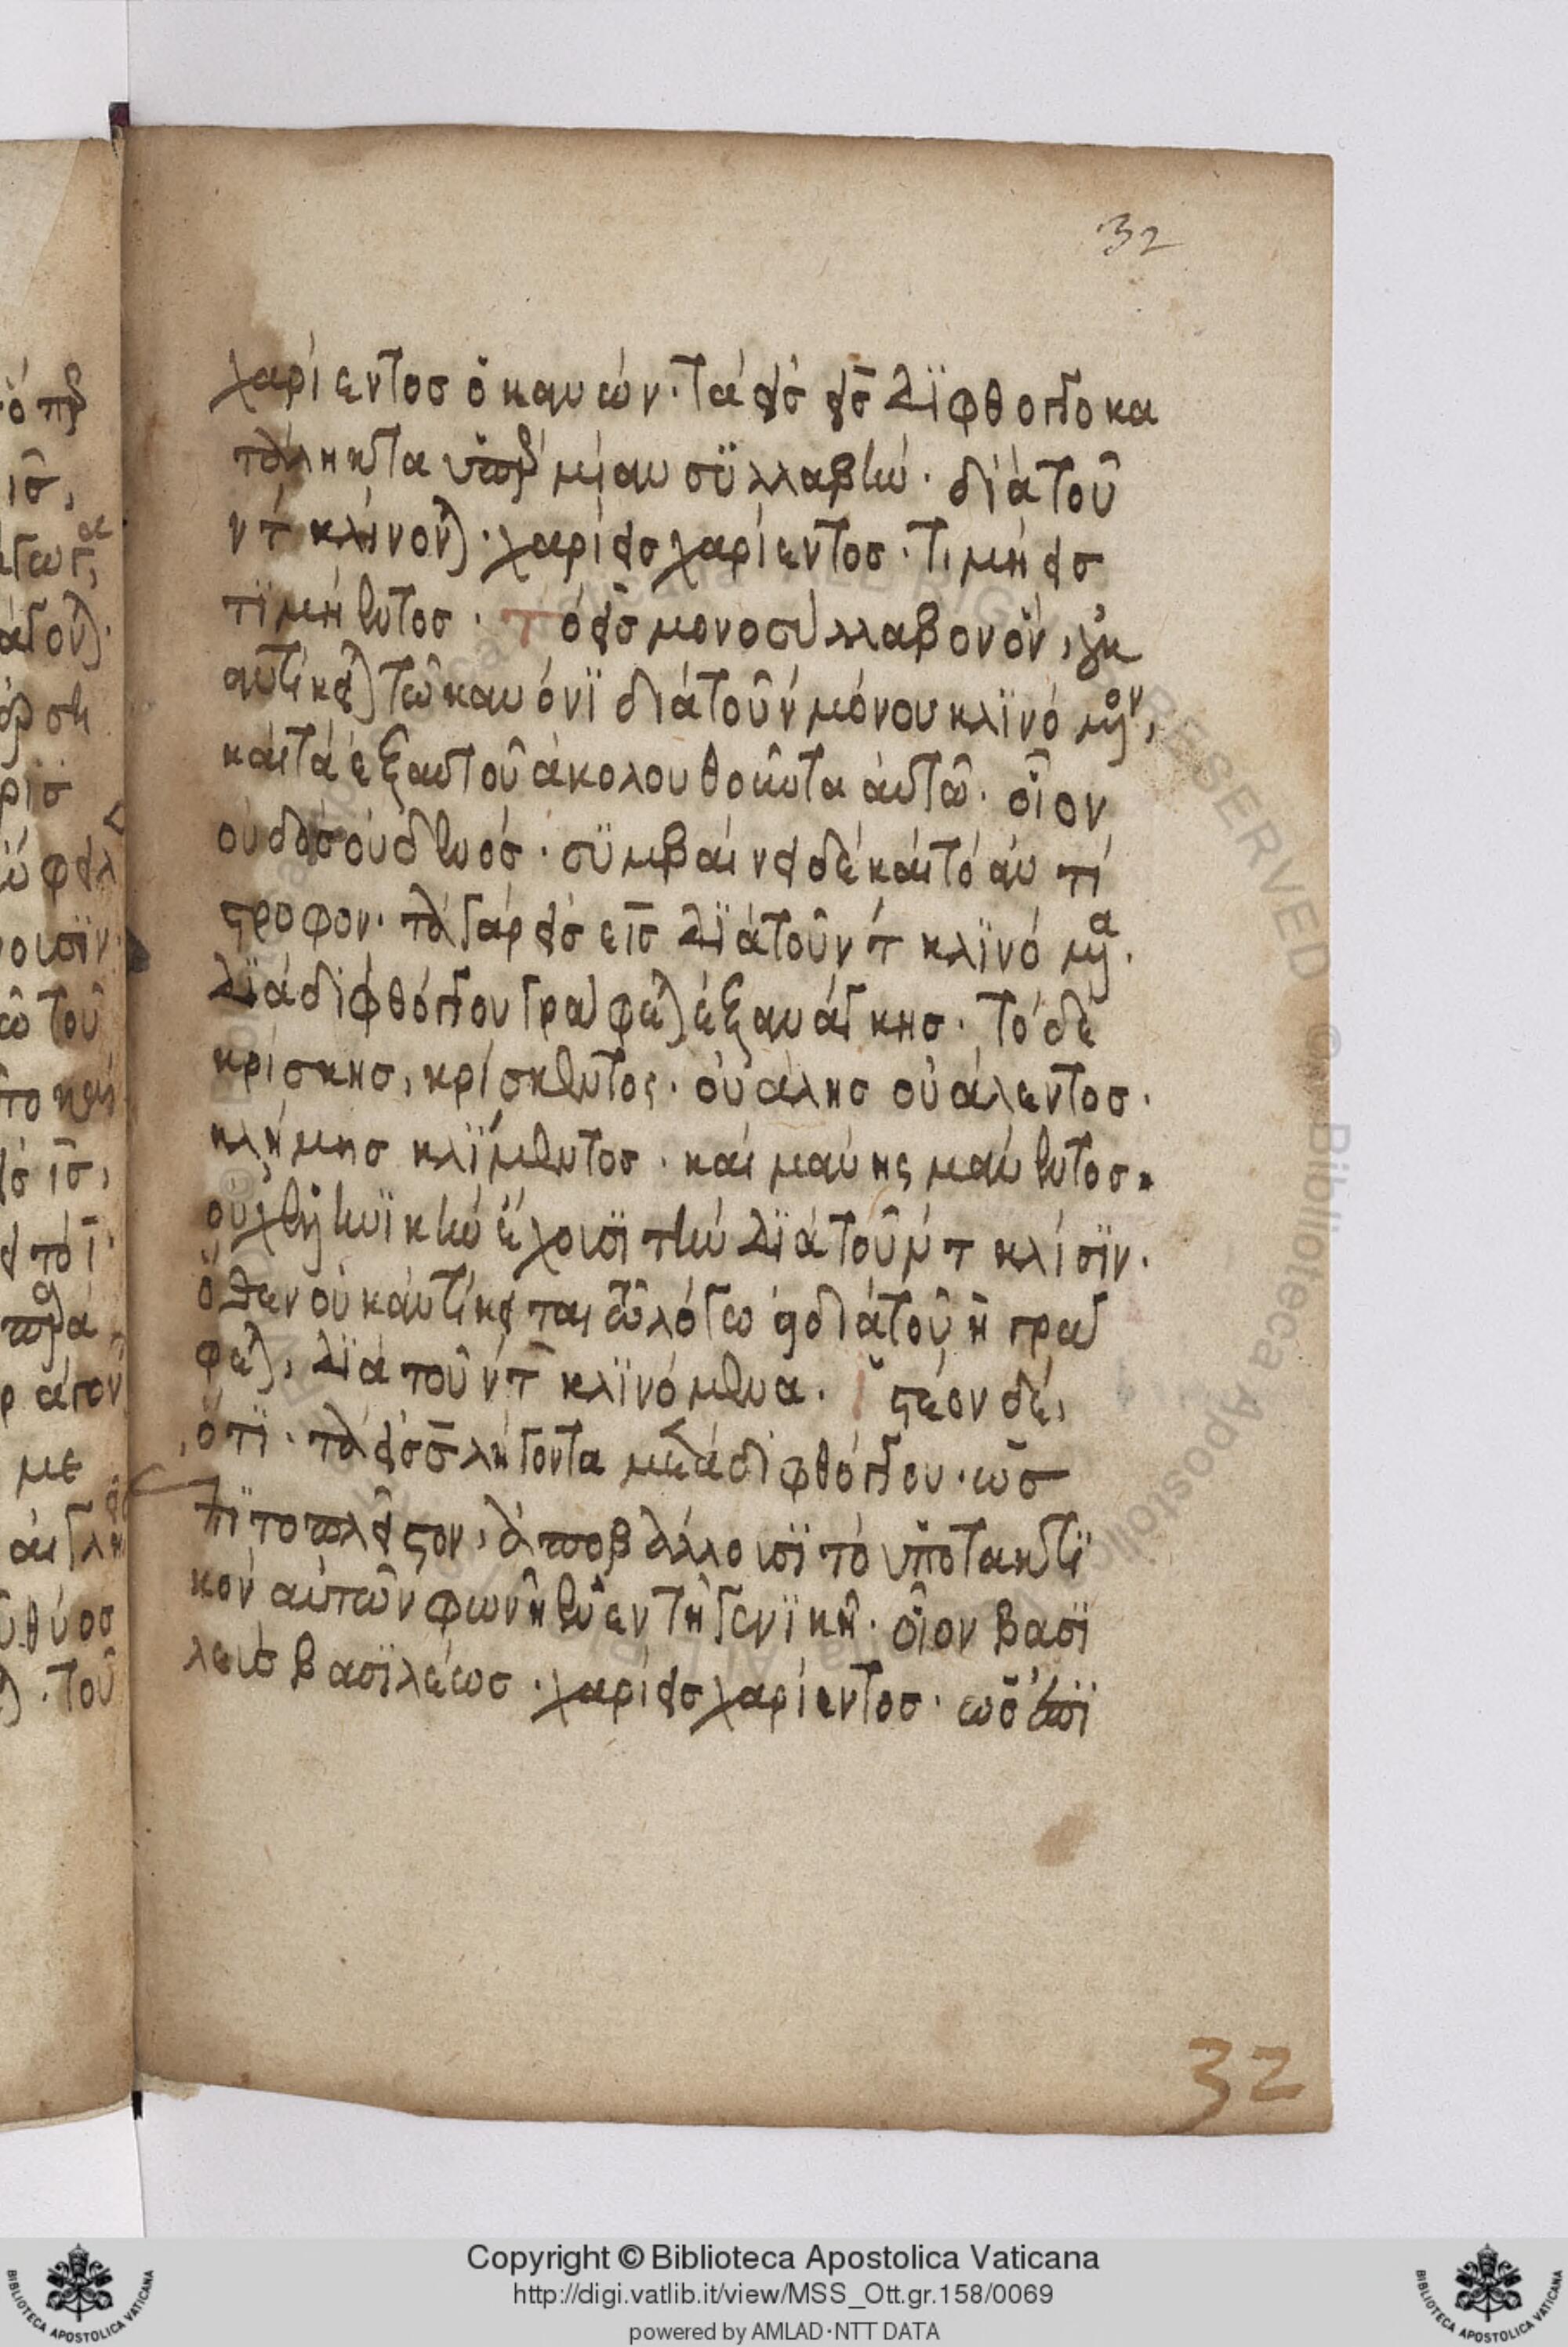 32
χαρίεντοσ ὁ κανών. τὰ εἰσ εισ διφθογγο κα
τάληκτα ὑπὲρ μίαν συλλαβὴν. διὰ τοῦ
ντ κλίνονται. χαρίεισ χαρίεντοσ. τιμήεισ
τιμήεντοσ. τὸ εἶσ μονοσύλλαβον ὂν, οὐκ
ἀντίκειται τῶ κανόνι διὰ τοῦ ν μόνου κλινόμενον,
καὶ τὰ ἐξ αυτοῦ ἀκολουθοῦντα ἀυτῶ. οἷον
οὐδεὶσ οὐδενόσ. συμβαίνει δὲ καὶ τὸ ἀν τί
στροφον. τὰ γὰρ εἰσ εισ διὰ τοῦ ντ κλινόμενα.
διὰ διφθόγγου γράφεται ἐξ ανάγκησ. τὸ δὲ
κρίσκησ, κρίσκεντος. οὐάλησ οὐάλεντοσ.
κλήμησ κλίμεντοσ. καὶ μαύης μαύεντοσ.
οὐχ ἑλληνικὴν ἔχουσι τὴν διὰ τοῦ ντ κλίσιν.
ὅθεν οὐκ ἀντίκειται τῶ λόγω εἰ διὰ τοῦ η γρά
φεται, διὰ τοῦ ντ κλινόμενα. ἰστέον δὲ,
ὅτι. τὰ εἰσ σ λήγοντα μετὰ διφθόγγου. ὡσ
ἐπιτοπλεῖστον, ἀποβάλλουσι τὸ ὑποτακτι
κόν αὐτῶν φωνῆεν ἐν τῆ γενικῆ. οἷον βασι
λεὺσ βασιλέωσ. χαρίεισ χαρίεντοσ. ὡσ ἐπι
32
Copyright © Biblioteca Apostolica Vaticana
http://digi.vatlib.it/view/MSS_Ott.gr.158/0069
powered by AMLAD·NTT DATA
BIBLIOTECA APOSTOLICA VATICANA
BIBLIOTECA APOSTOLICA VATICANA